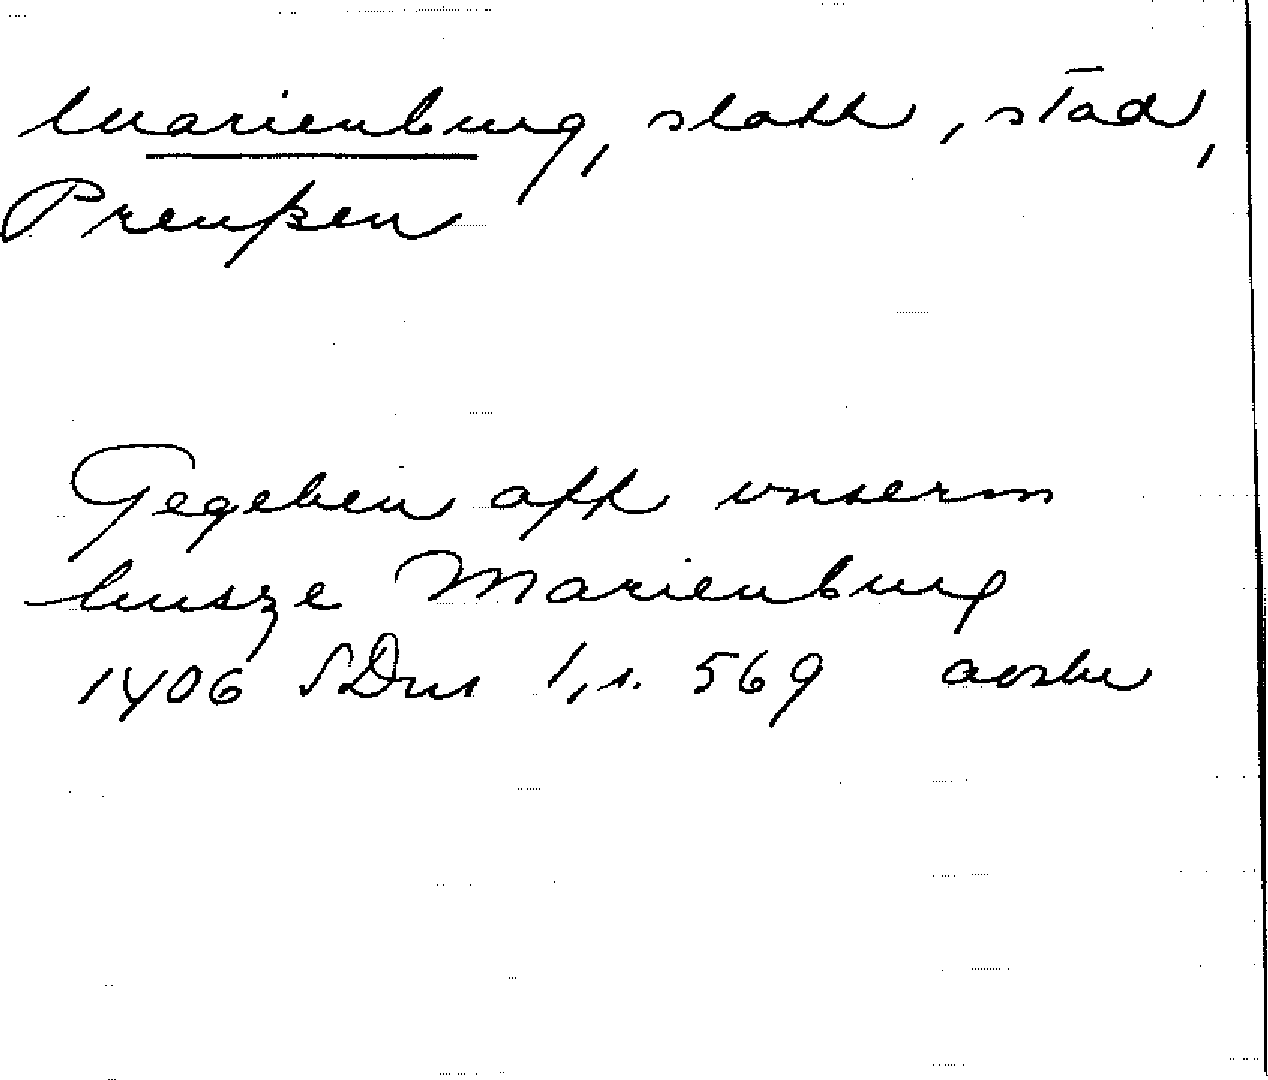 Marienburg, slott, stad,
Preußen
Gegeben off unserm
husze Marienburg
1406 SDns 1, s. 569